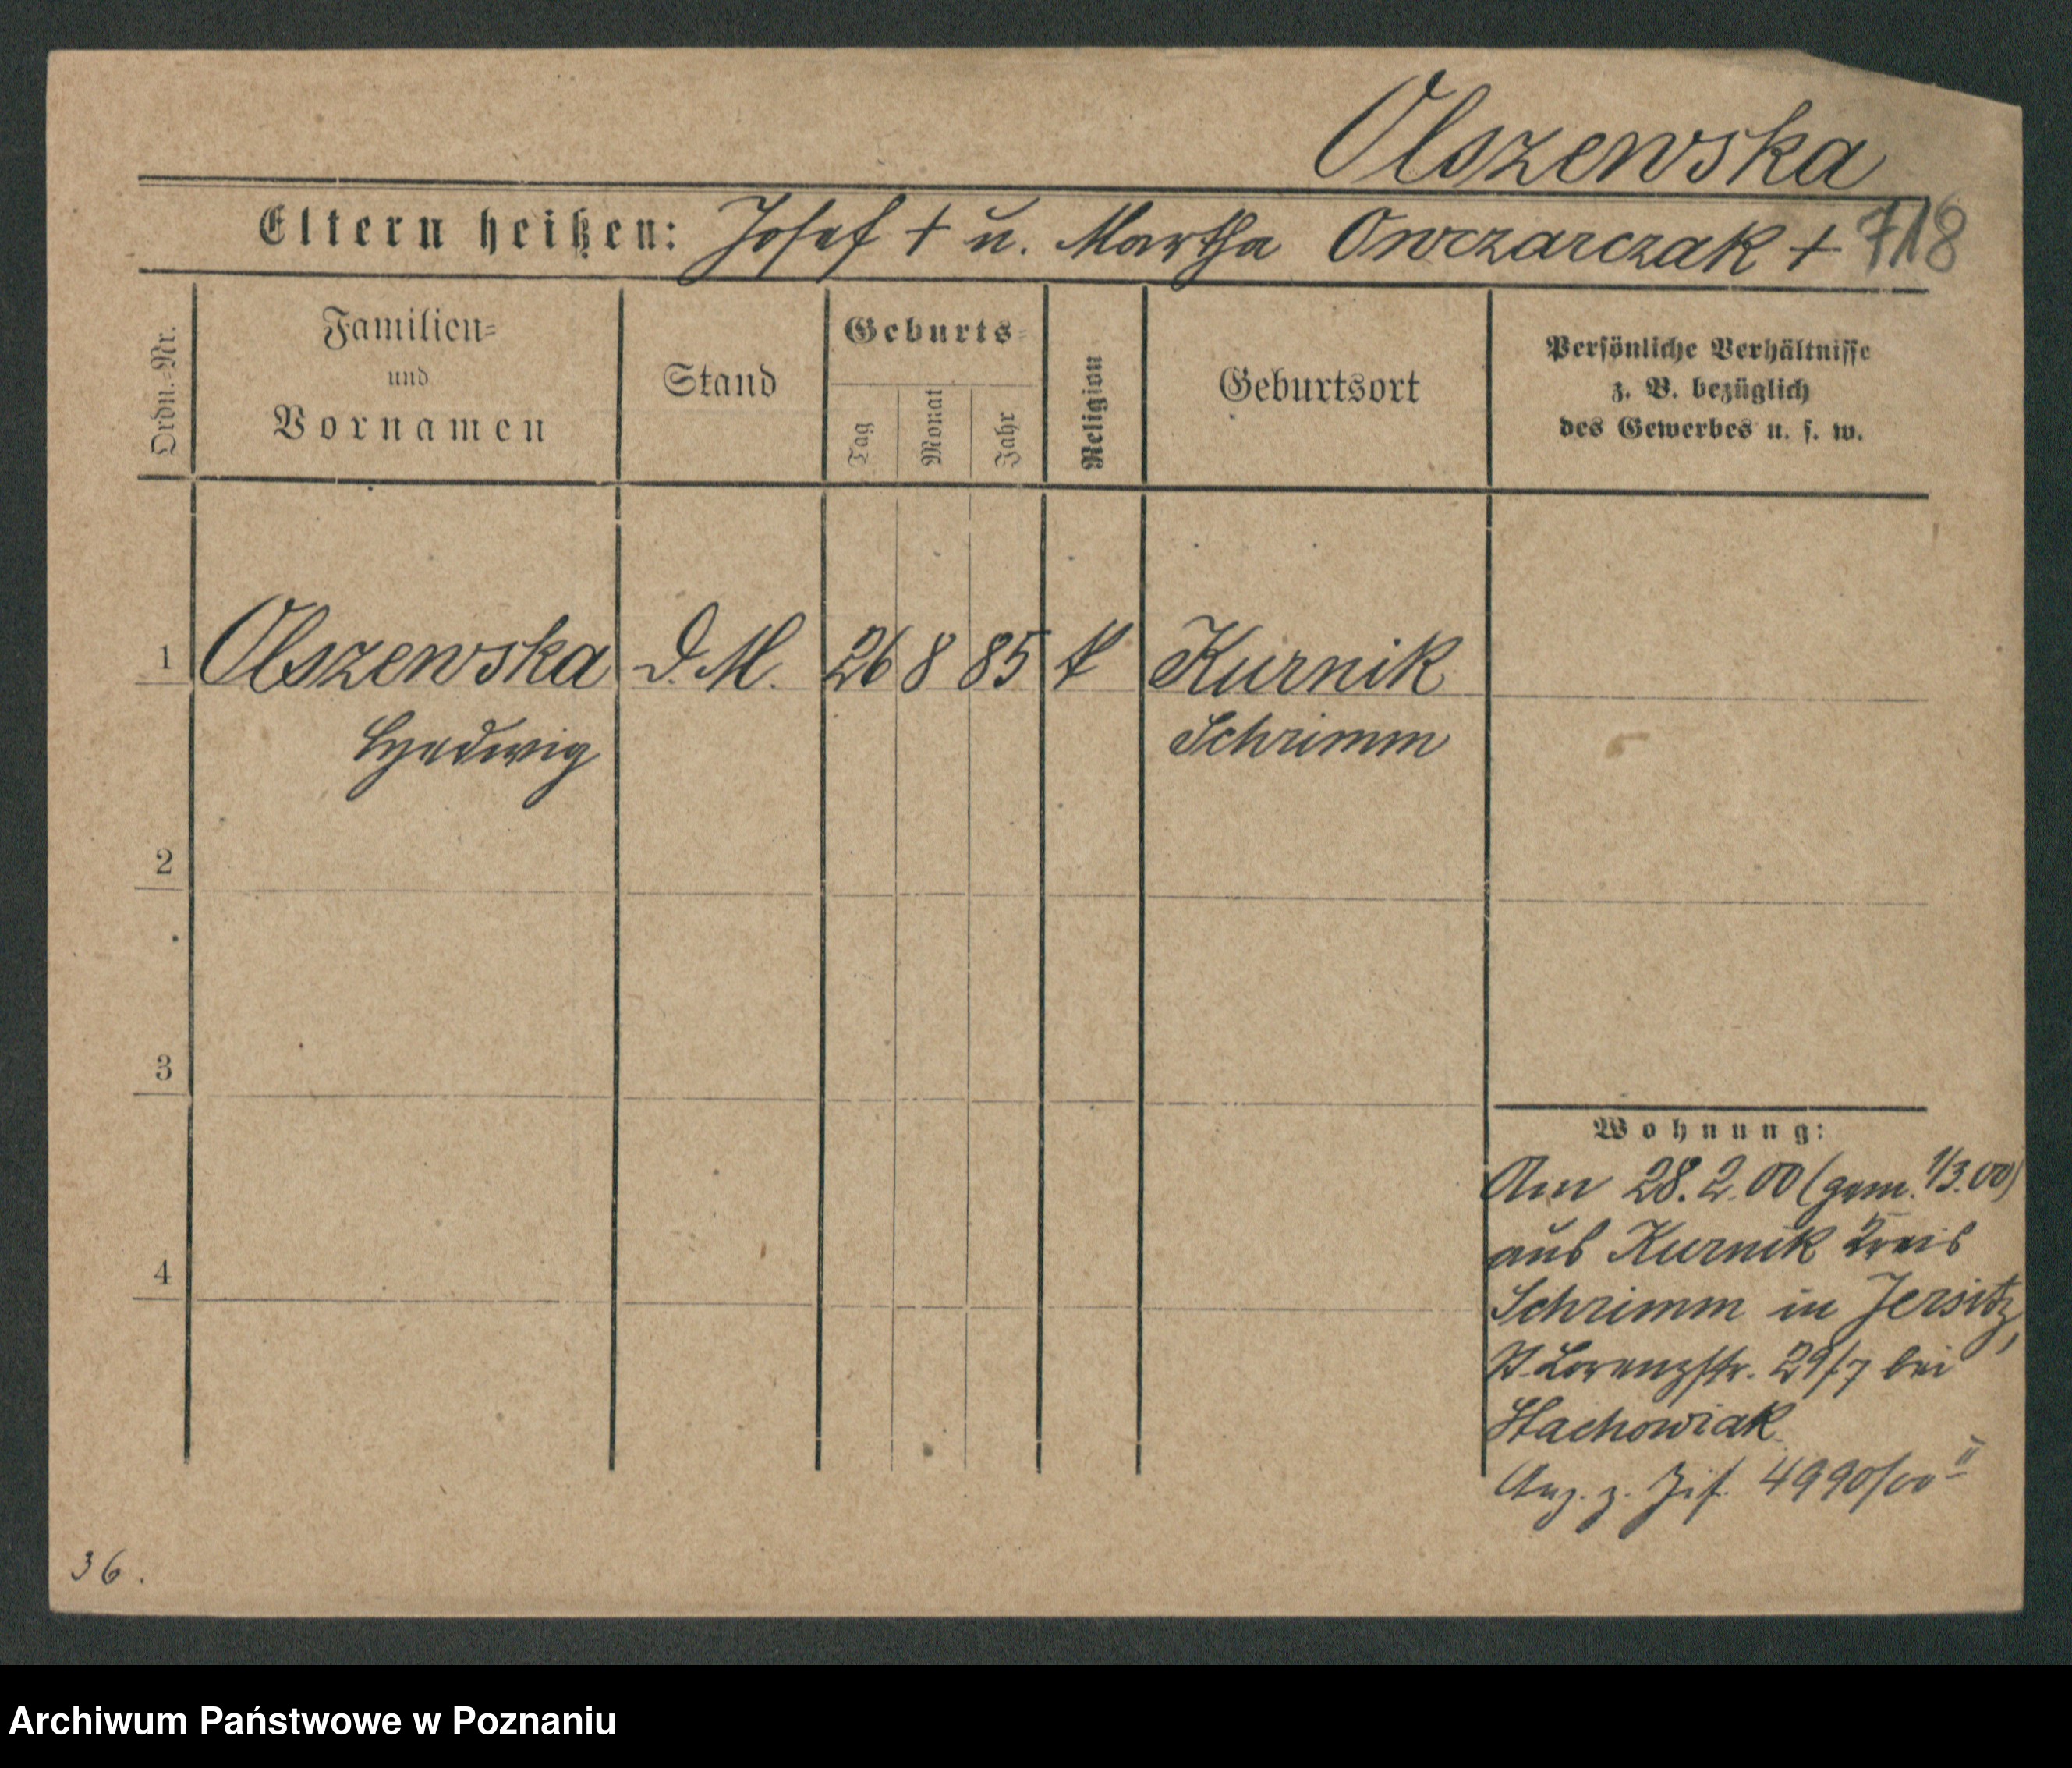 Olszewska
Eltern heißen: Josef + u. Martha Owczarczak + 718
Ordn.-Nr.
Familien-
und
Vornamen
Stand
Geburts-
Tag
Monat
Jahr
Religion
Geburtsort
Persönliche Verhältnisse
z. B. bezüglich
des Gewerbes u. s. w.
1 Olszewska D. M. 26 8 85 k Kurnik
Hedwig Schrimm
2
3
4
Wohnung:
Am 28.2.00 (gem. 1/3.00)
aus Kurnik Kreis
Schrimm in Jersitz,
St. Lorenzstr. 29/7 bei
Stachowiak
Anz. z. 4990/00 II
36.
Archiwum Państwowe w Poznaniu